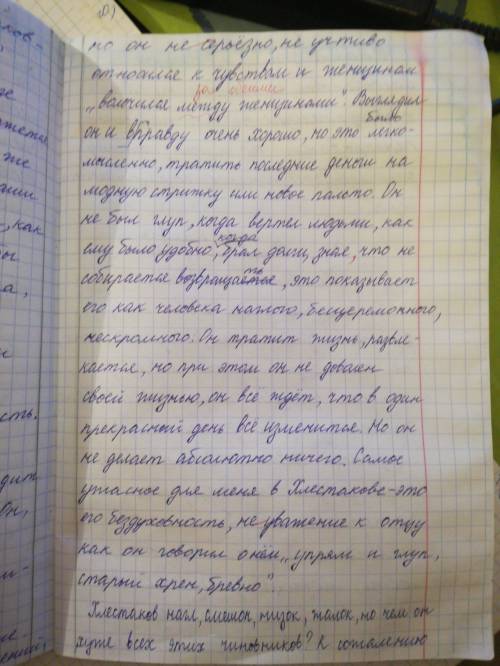 но он не серьёзно, не учтиво
относился к чувствам и женщинам
„волочился между женщинами". Выглядил
было
он и вправду очень хорошо, но это легко-
мысленно, тратить последние деньги на
модную стрижку или новое пальто. Он
не был глуп, когда вертел людьми, как
когда
ему было удобно, брал долги, зная, что не
собирается возвращать, это показывает
его как человека наглого, бесцеремонного,
нескромного. Он тратит жизнь, развле-
кается, но при этом он не доволен
своей жизнью, он всё ждёт, что в один
прекрасный день всё изменится. Но он
не делает абсолютно ничего. Самое
ужасное для меня в Хлестакове-это
его бездуховность, не уважение к отцу
как он говорил о нём „упрям и глуп,
старый хрен, бревно".
Хлестаков нагл, смешон, низок, жалок, но чем он
хуже всех этих чиновников? К сожалению